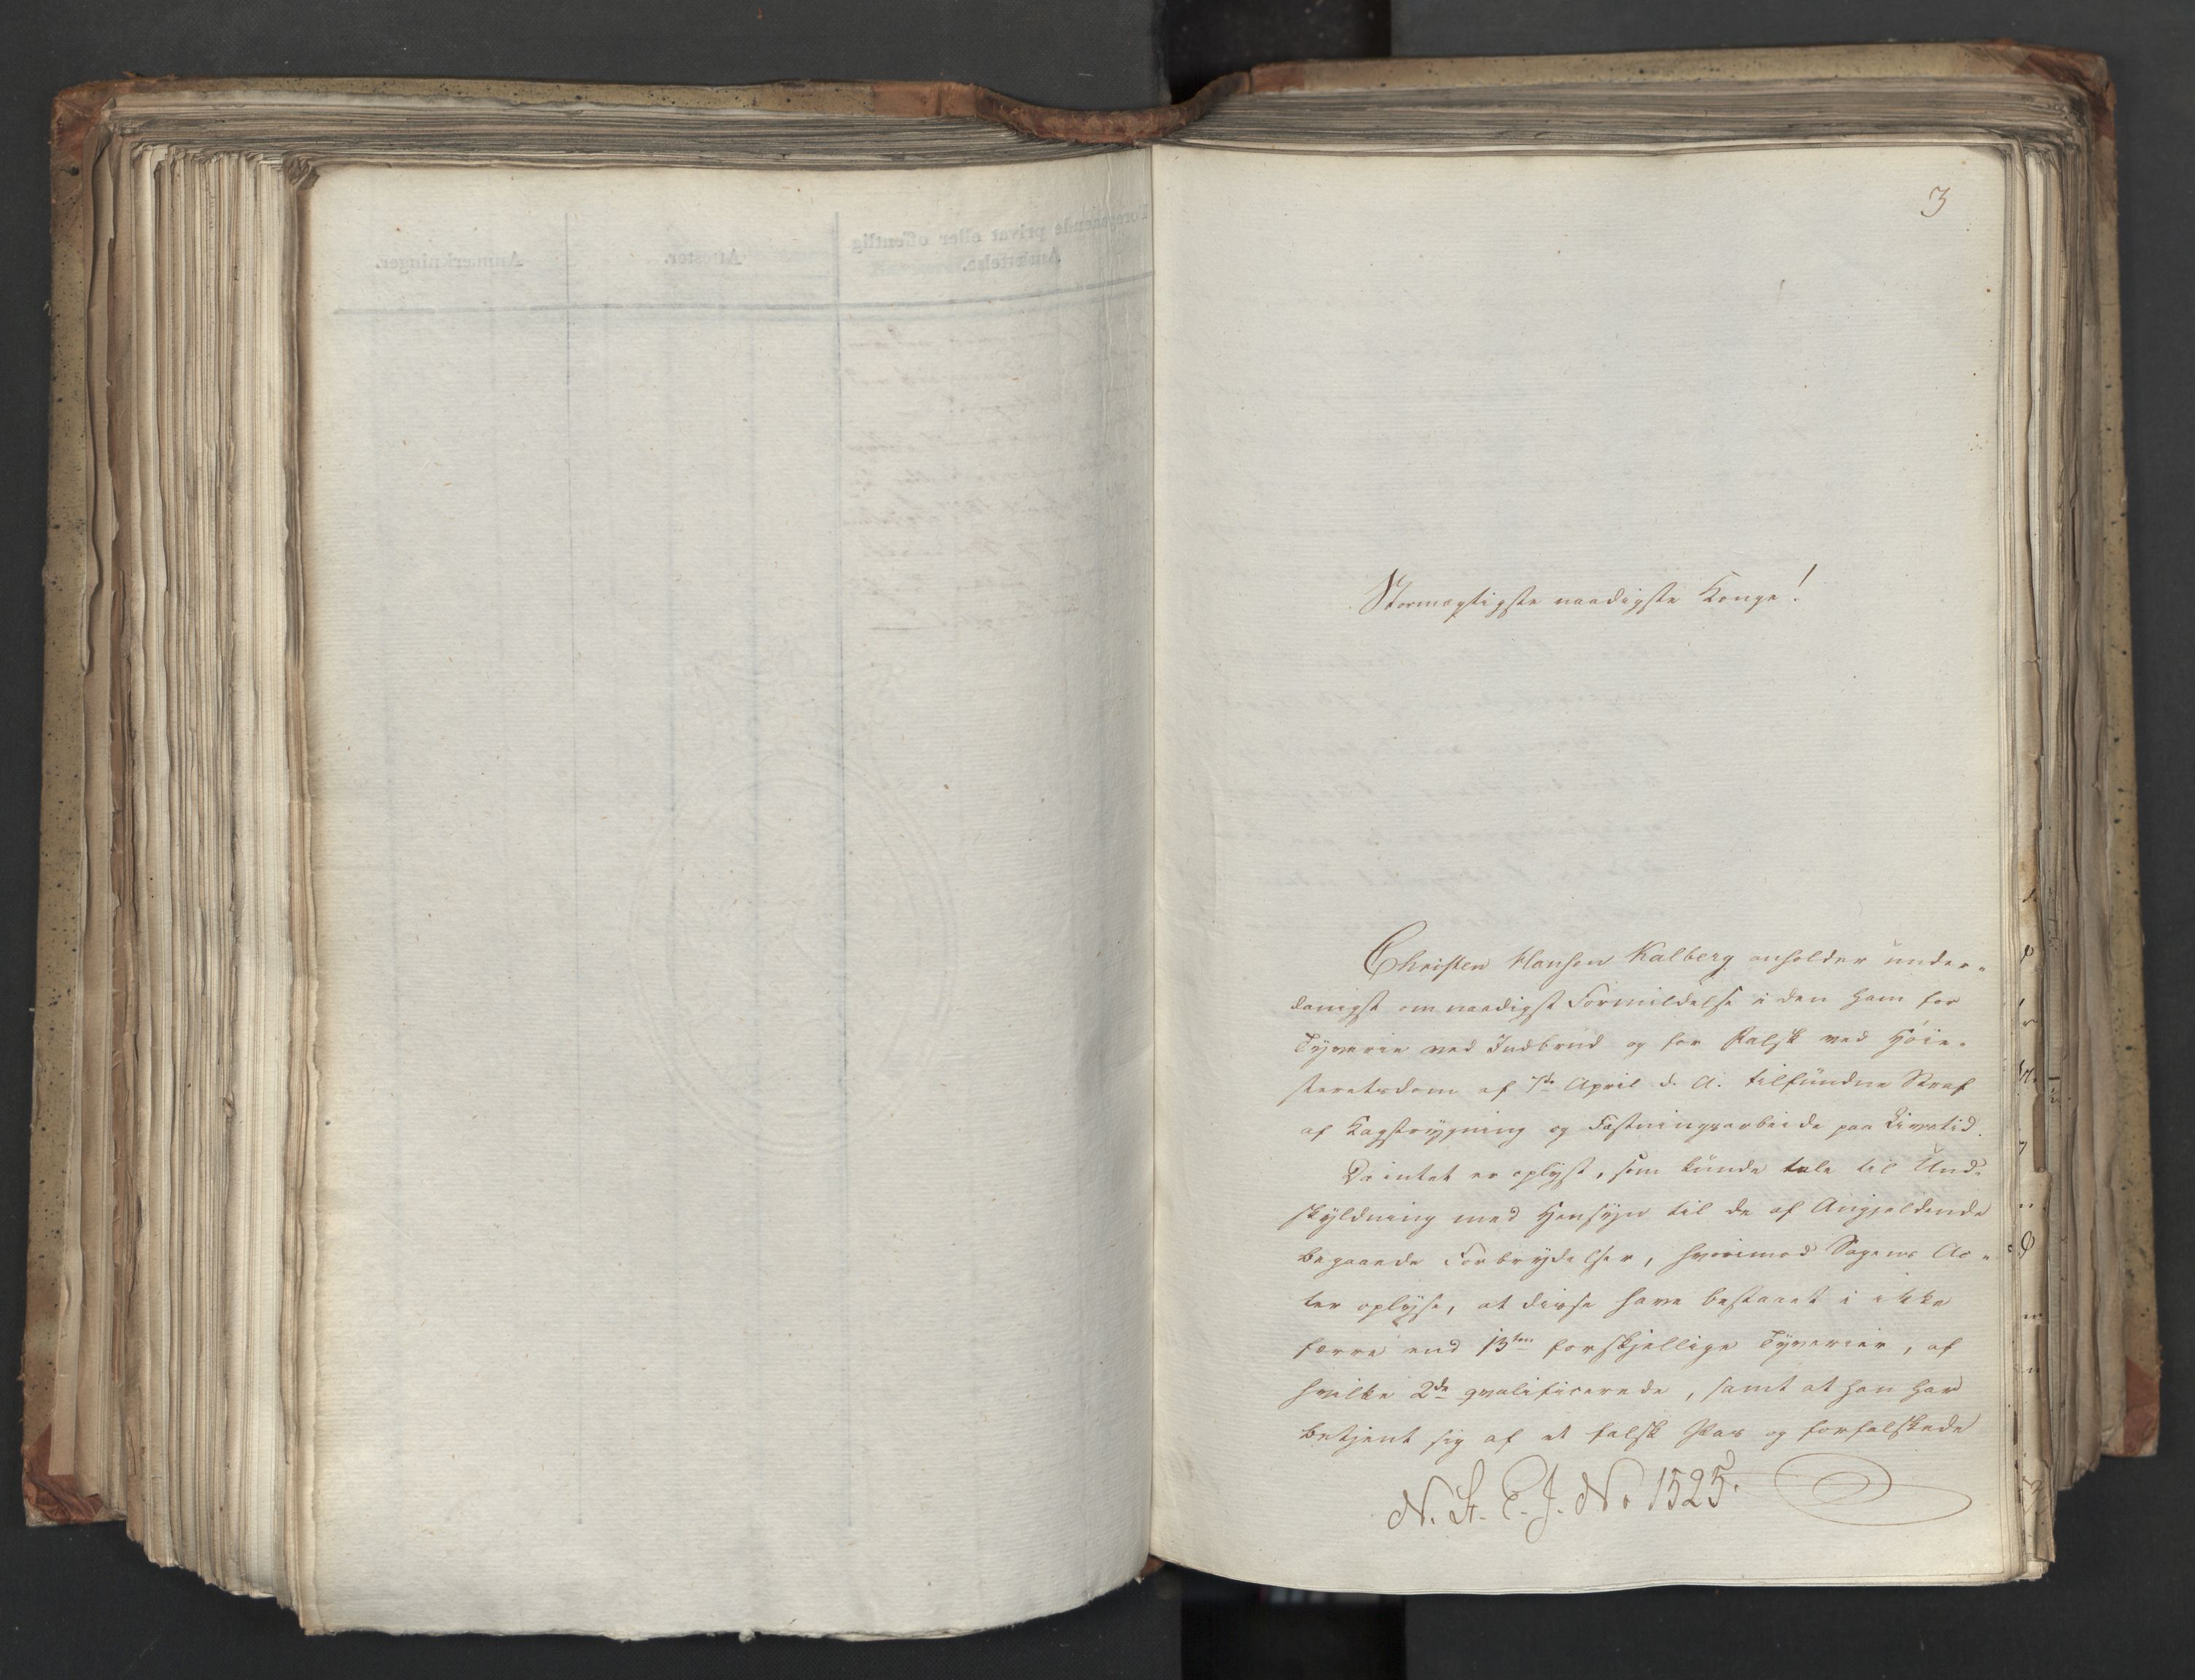 3
Stormægtigste naadigste Konge!
Christen Hansen Kalberg anholder under-
danigst om naadigst Formildelse i den ham for
Tyverie ved Indbrud og for Falsk ved Høie-
steretsdom af 7de April d. A. tilfundne Straf
af Kagstrygning og Fæstningsarbeide paa Livstid.
Da intet er oplyst, som kunde tale til Und-
skyldning med Hensyn til de af Angjeldende
begaaede Forbrydelser, hvorimod Sagens Ac-
ter oplyse, at disse have bestaaet i ikke
færre end 13ten forskjellige Tyverier, af
hvilke 2de qvalificerede, samt at han har
betjent sig af et falsk Pas og forfalskede
N. St. E. J. No 1525.
Foregaaende privat eller offentlig
Ansættelse.
Attester.
Anmærkninger.